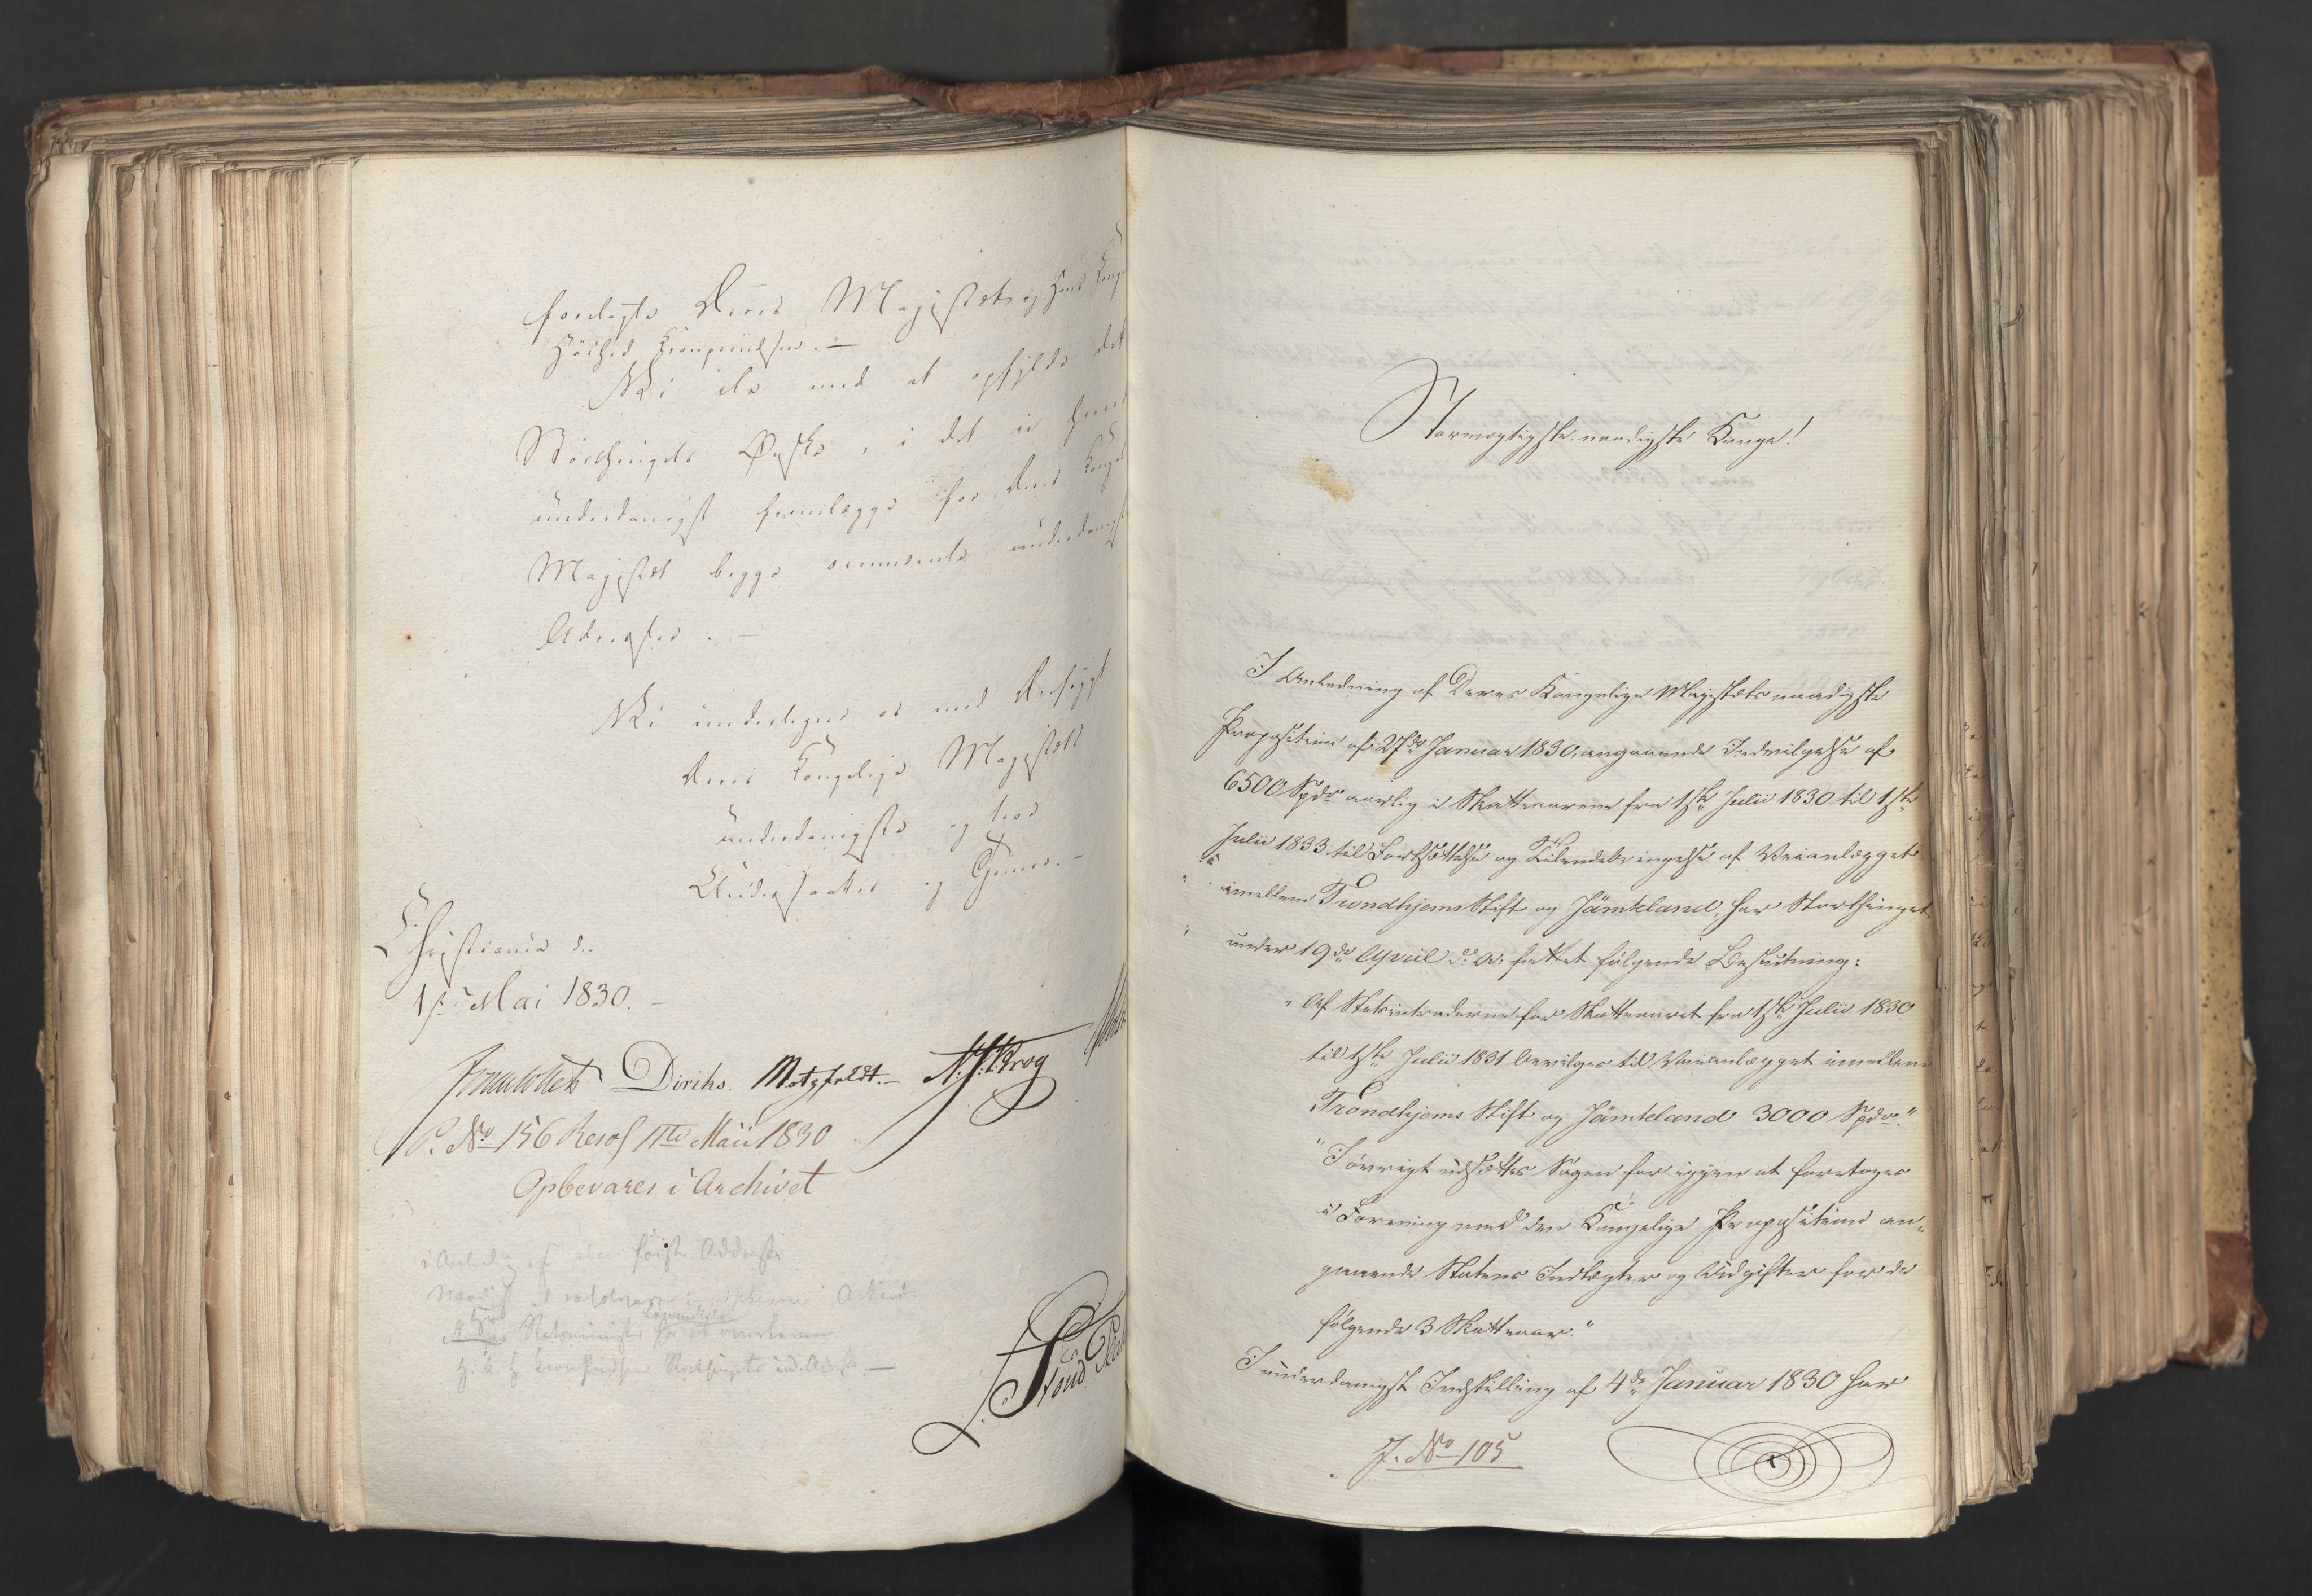 forelagte Deres Majestæt og Hans Kongl
Höihed Kronprindsen. —
Vi ile med at opfylde det
Störthingets Ønske, i det vi herved
underdanigst fremlægge for Deres Kongel
Majestæt begge ommeldte underdanigst
Adresser. —
Vi undertegne os med Dybeste
Deres Kongelige Majestæts
underdanigste og troe
Undersaatter og Tjenere. —
Christiania den
1ste Mai 1830. —
Diriks. Motzfeldt. — Krog
P. No 156 Resol 11te Maii 1830
Opbevares i Archivet
i Anledn. af den første Addresse
Statsminister
H. K. H Kronprindsen Storthingets und. Adresse —
Stormægtigste naadigste Konge!
I Anledning af Deres Kongelige Majestæts naadigste
Proposition af 27de Januar 1830, angaaende Indvilgelse af
6500 Spdr aarlig i Skatteaarene fra 1ste Julii 1830 til 1ste
Julii 1833 til Fortsættelse og Tilendebringelse af Veianlægget
imellem Trondhjems Stift og Jämteland, har Storthinget
under 19de April d: A: fattet følgende Beslutning:
"Af Statsintraderne for Skatteaaret fra 1ste Julii 1830
til 1ste Julii 1831 bevilges til Veianlægget imellem
Trondhjems Stift og Jämteland 3000 Spdr."
"Iøvrigt udsættes Sagen for igjen at foretages
i Forening med den Kongelige Proposition an-
gaaende Statens Indtægter og Udgifter for de
følgende 3 Skatteaar."
I underdanigst Indstilling af 4de Januar 1830 har
J. No 105